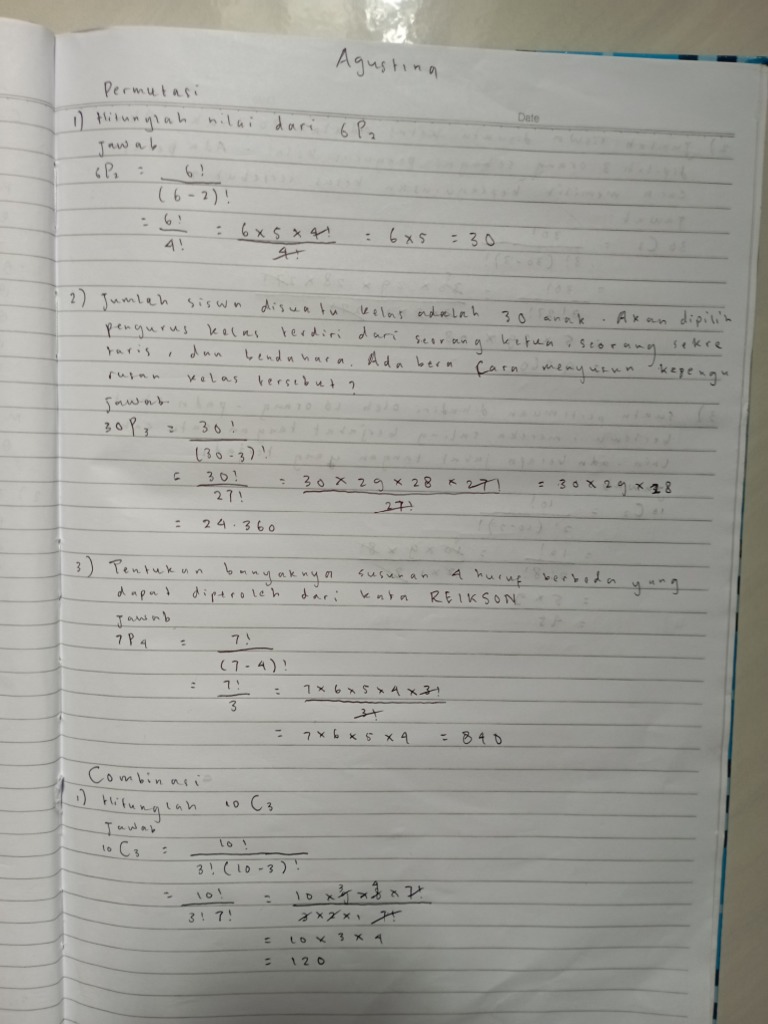 Agustina
Permutasi
Date
1) Hitunglah nilai dari 6P2
Jawab
6P2 = 6! / (6-2)!
= 6! / 4! = 6 x 5 x 4! / 4! = 6 x 5 = 30
2) Jumlah siswa disuatu kelas adalah 30 anak. Akan dipilih
pengurus kelas terdiri dari seorang ketua, seorang sekre
taris, dan bendahara. Ada bera cara menyusun kepengu
rusan kelas tersebut?
Jawab
30P3 = 30! / (30-3)!
= 30! / 27! = 30 x 29 x 28 x 27! / 27! = 30 x 29 x 28
= 24.360
3) Tentukan banyaknya susunan 4 huruf berbeda yang
dapat diperoleh dari kata REIKSON
Jawab
7P4 = 7! / (7-4)!
= 7! / 3 = 7 x 6 x 5 x 4 x 3! / 3!
= 7 x 6 x 5 x 4 = 840
Combinasi
1) Hitunglah 10 C3
Jawab
10 C3 = 10! / 3! (10-3)!
= 10! / 3! 7! = 10 x 3 x 4 x 7! / 3 x 2 x 1 7!
= 10 x 3 x 4
= 120